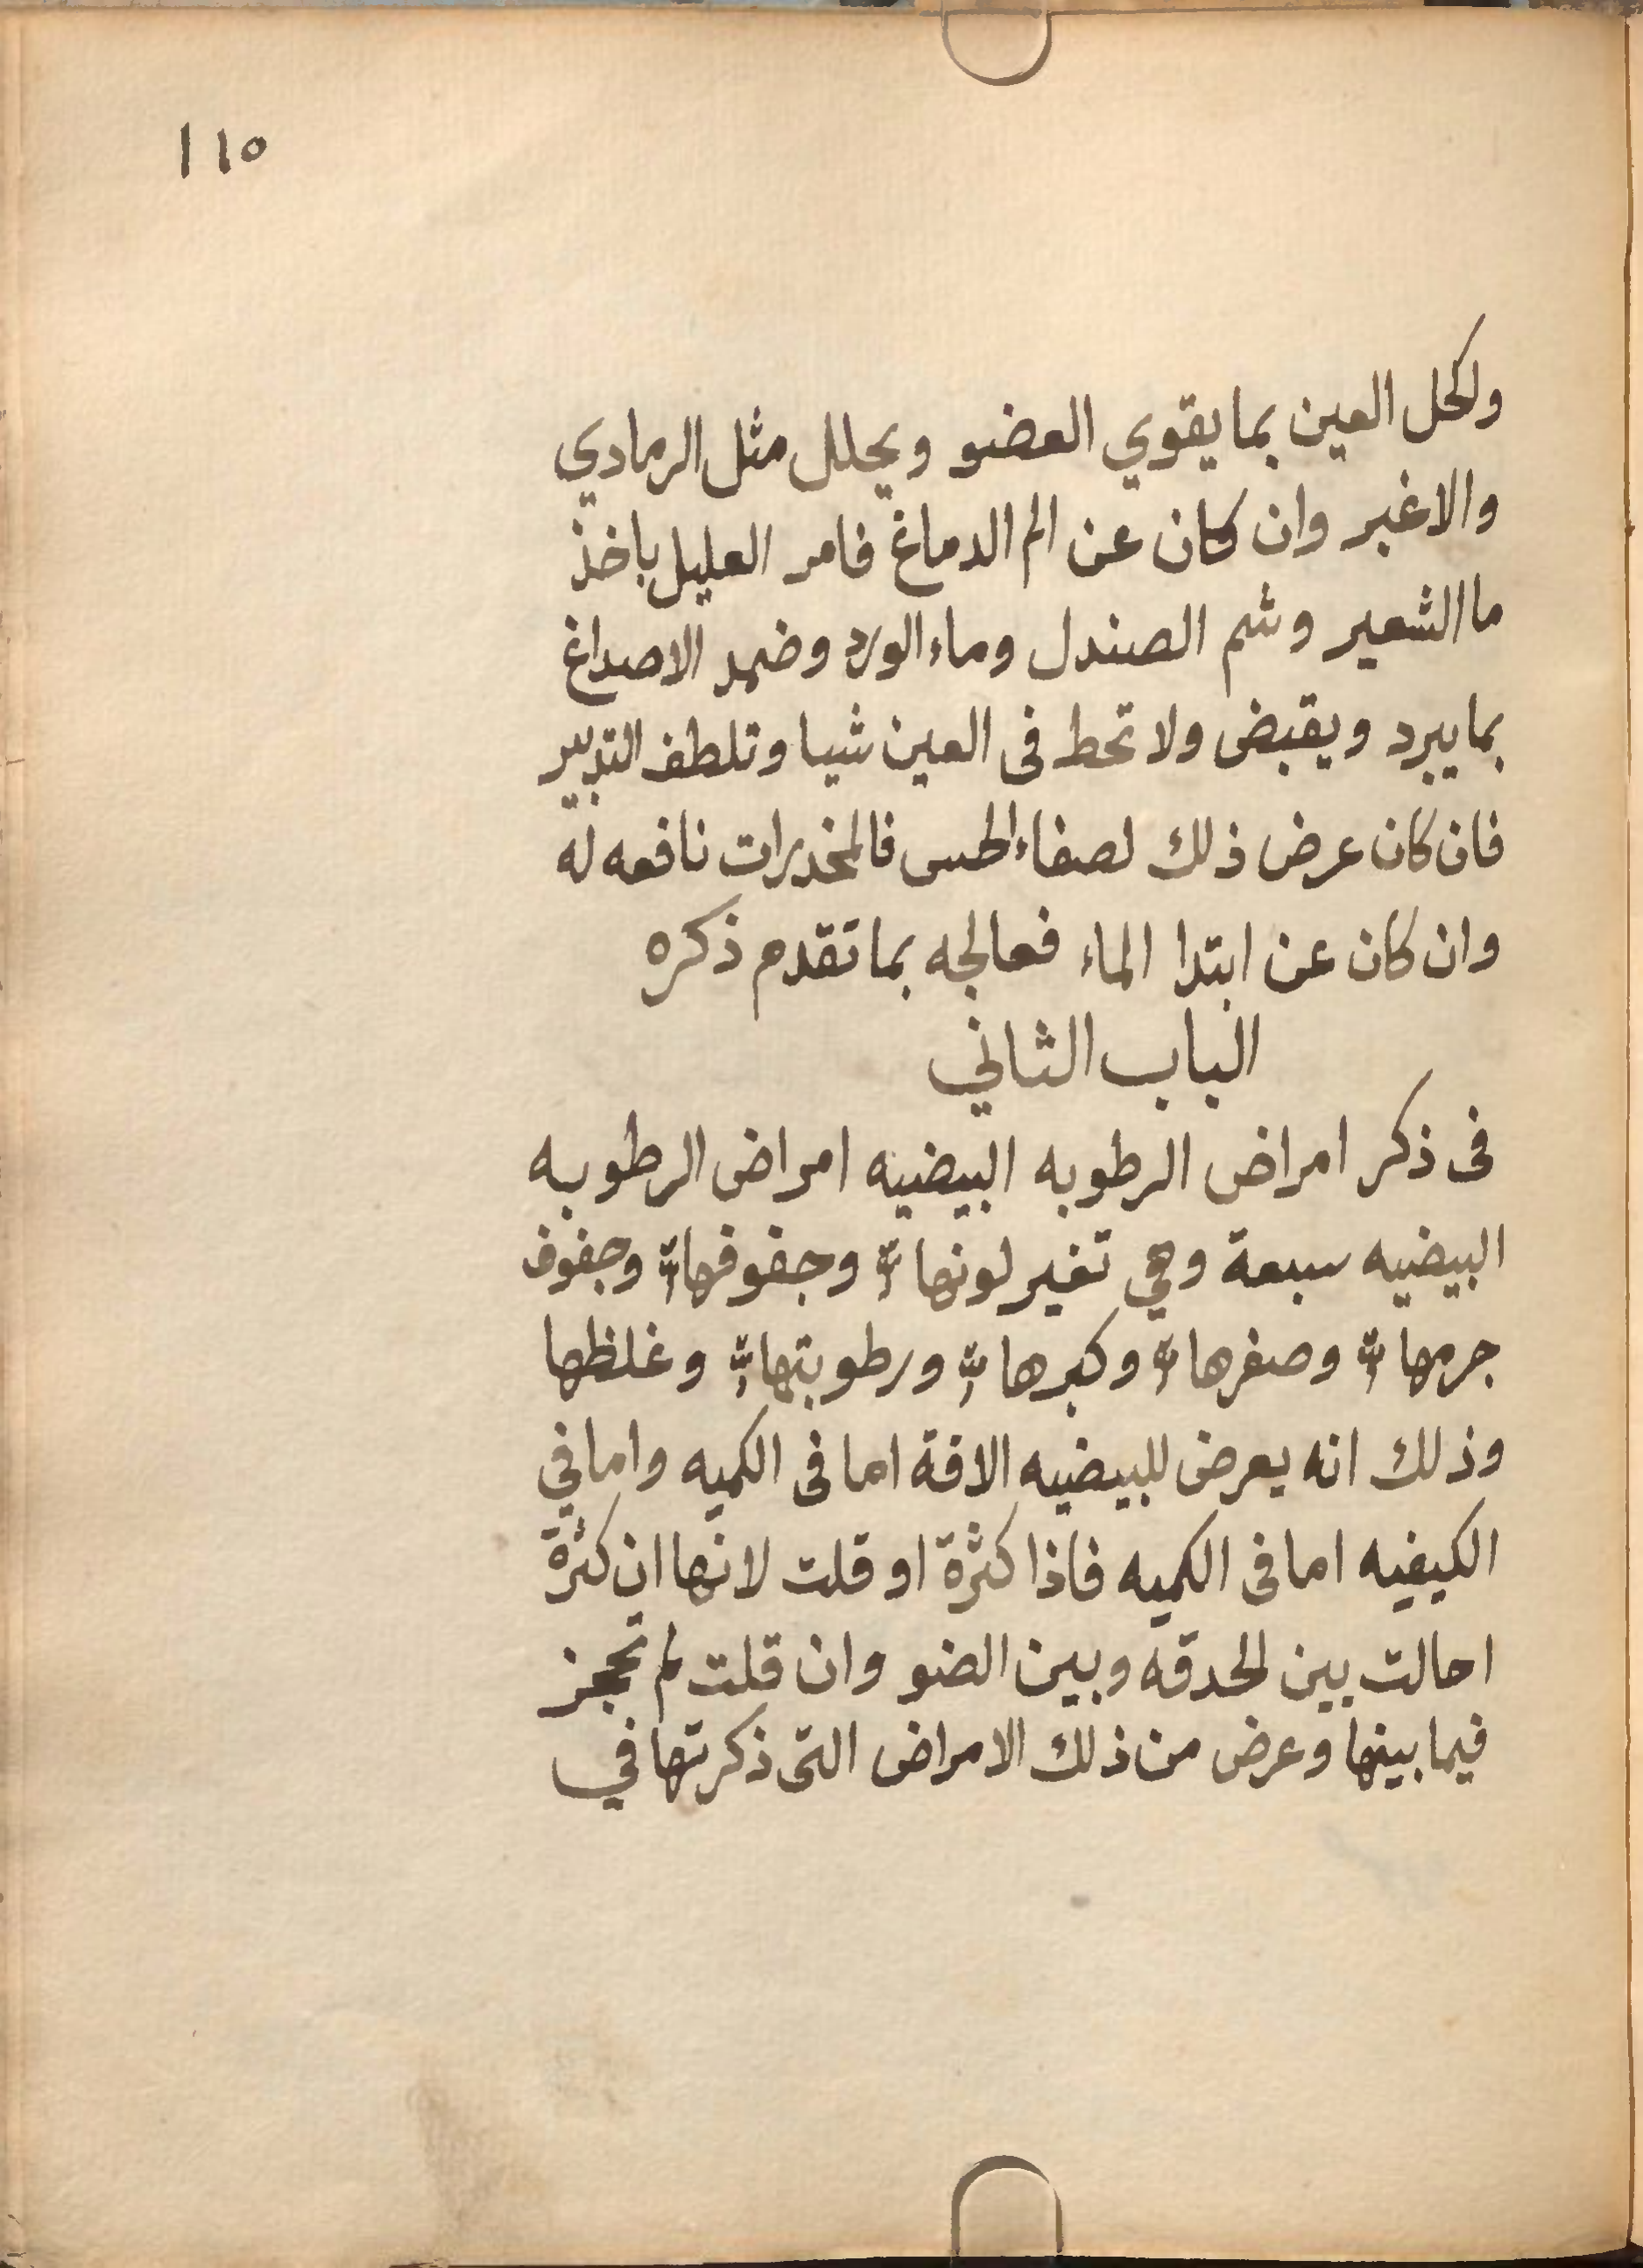 ١١٥
ولكحل العين بما يقوي العضو ويحلل مثل الرمادي
والاغبر وان كان عن الم الدماغ فامر العليل باخذ
ما الشعير وشم الصندل وماء الورد وضمد الاصداغ
بما يبرد ويقبض ولا تحط فى العين شيا وتلطف التدبير
فان كان عرض ذلك لصفاء الحس فالمخدرات نافعه له
وان كان عن ابتدا الماء فعالجه بما تقدم ذكره
الباب الثاني
فى ذكر امراض الرطوبه البيضيه امراض الرطوبه
البيضيه سبعة وهي تغير لونها وجفوفها وجفوف
جرمها وصغرها وكبرها ورطوبتها وغلظها
وذلك انه يعرض للبيضيه الافة اما فى الكميه واما في
الكيفيه اما فى الكميه فاذا كثرة او قلت لانها ان كثرة
احالت بين الحدقه وبين الضو وان قلت لم تحجز
فيما بينها وعرض من ذلك الامراض التى ذكرتها في